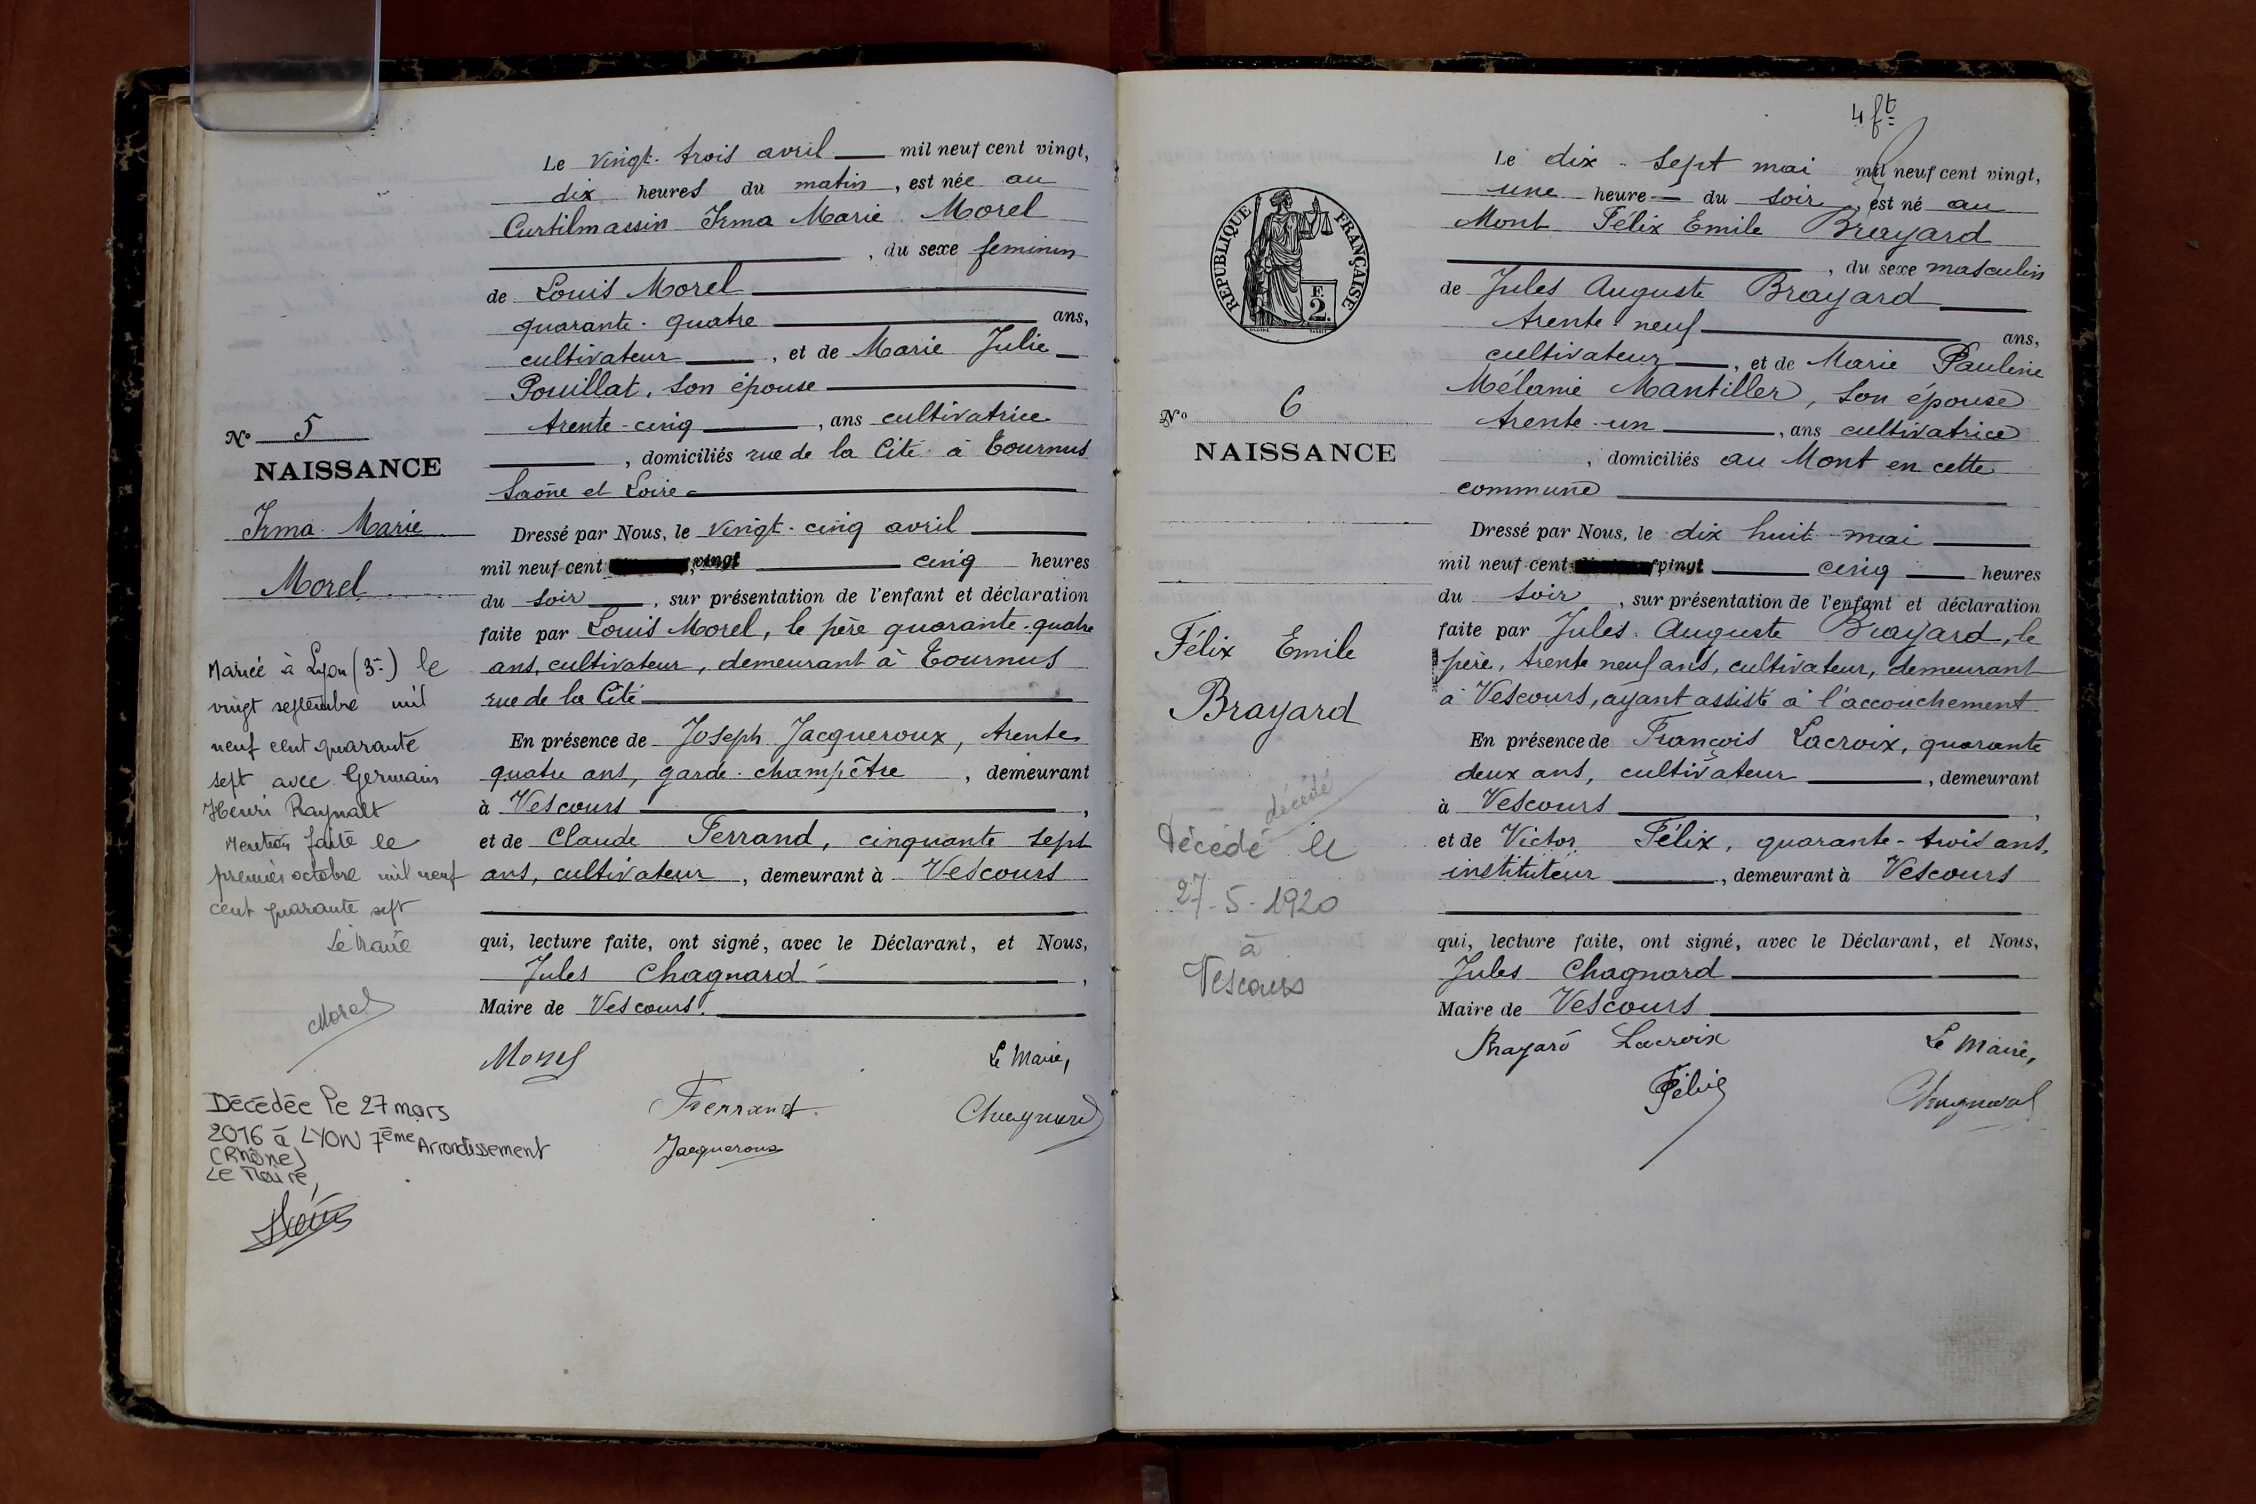 Le vingt-trois avril mil neuf cent vingt,
dix heures du matin, est née au
Curtilmassin Irma Marie Morel
, du sexe feminin
de Louis Morel
quarante-quatre ans,
cultivateur, et de Marie Julie
Pouillat, son épouse
trente-cinq, ans cultivatrice
, domiciliés rue de la Cité à Tournus
Saône et Loire
Dressé par Nous, le vingt-cinq avril
mil neuf cent vingt cinq heures
du soir, sur présentation de l'enfant et déclaration
faite par Louis Morel, le père quarante-quatre
ans, cultivateur, demeurant à Tournus
rue de la Cité
En présence de Joseph Jacqueroux, trente
quatre ans, garde-champêtre, demeurant
à Vescours,
et de Claude Ferrand, cinquante sept
ans, cultivateur, demeurant à Vescours
qui, lecture faite, ont signé, avec le Déclarant, et Nous,
Jules Chagnard,
Maire de Vescours.
Morel
Le Maire,
Ferrand
Chagnard
Jacqueroux
No 5
NAISSANCE
Irma Marie
Morel
Mariée à Lyon (3e) le
vingt septembre mil
neuf cent quarante
sept avec Germain
Henri Raynalt
Mention faite le
premier octobre mil neuf
cent quarante sept
Le Maire
Morel
Décédée le 27 mars
2016 à LYON 7ème Arrondissement
(Rhône)
Le Maire,
4 ft
RÉPUBLIQUE FRANÇAISE
F.
2.
No 6
NAISSANCE
Félix Emile
Brayard
décédé
Décédé le
27-5-1920
à
Vescours
Le dix-sept mai mil neuf cent vingt,
une heure du soir, est né au
Mont Félix Emile Brayard
, du sexe masculin
de Jules Auguste Brayard
trente-neuf ans,
cultivateur, et de Marie Pauline
Mélanie Mantiller, son épouse
trente-un, ans cultivatrice
, domiciliés au Mont en cette
commune
Dressé par Nous, le dix huit mai
mil neuf cent vingt cinq heures
du soir, sur présentation de l'enfant et déclaration
faite par Jules Auguste Brayard, le
père, trente neuf ans, cultivateur, demeurant
à Vescours, ayant assisté à l'accouchement
En présence de François Lacroix, quarante
deux ans, cultivateur, demeurant
à Vescours,
et de Victor Félix, quarante-trois ans,
instituteur, demeurant à Vescours
qui, lecture faite, ont signé, avec le Déclarant, et Nous,
Jules Chagnard
Maire de Vescours
Brayard Lacroix
Le Maire,
Félix
Chagnard